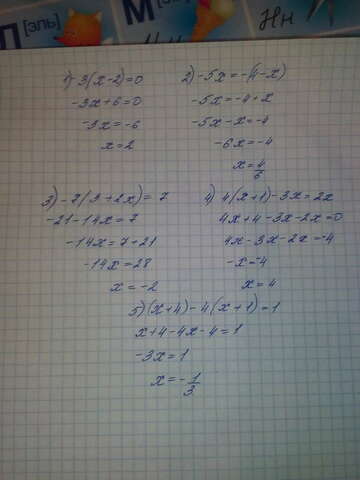 [эль]
М
Нн
1) -3(x-2)=0
-3x+6=0
-3x=-6
x=2
2) -5x=-(4-x)
-5x=-4+x
-5x-x=-4
-6x=-4
x=4/6
3) -7(3+2x)=7
-21-14x=7
-14x=7+21
-14x=28
x=-2
4) 4(x+1)-3x=2x
4x+4-3x-2x=0
4x-3x-2x=-4
-x=-4
x=4
5) (x+4)-4(x+1)=1
x+4-4x-4=1
-3x=1
x=-1/3